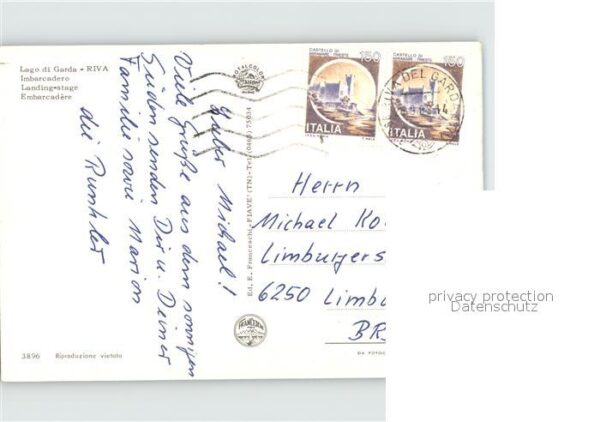 Lago di Garda - RIVA
Imbarcadero
Landing-stage
Embarcadère
Lieber Michael!
Viele Grüße aus dem sonnigen
Süden senden Dir u. Deiner
Familie sowie Marion
die
ROTALCOLOR
Ed. E. Franceschi - FIAVE' (TN) - Tel. (0465) 75034
CASTELLO DI
MIRAMARE - TRIESTE
150
ITALIA
CASTELLO DI
MIRAMARE - TRIESTE
150
ITALIA
DEL GARD
Herrn
Michael
Limburgers
6250 Limbu
BR
3896 Riproduzione vietata
DA FOTOC
privacy protection
Datenschutz